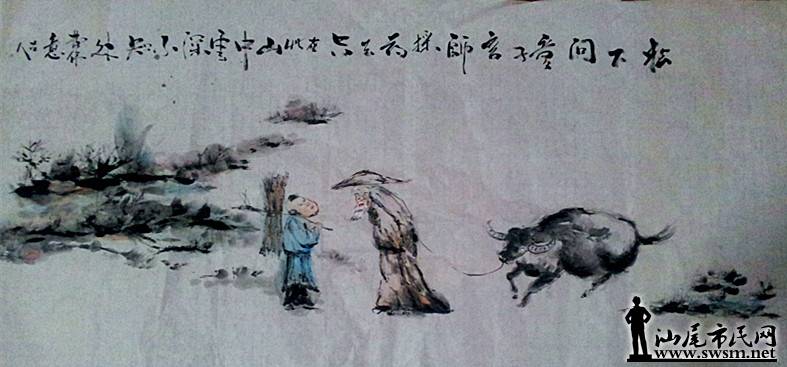 松下问童子言師採药去只在此山中雲深不知处
汕尾市民网
www.swsm.net